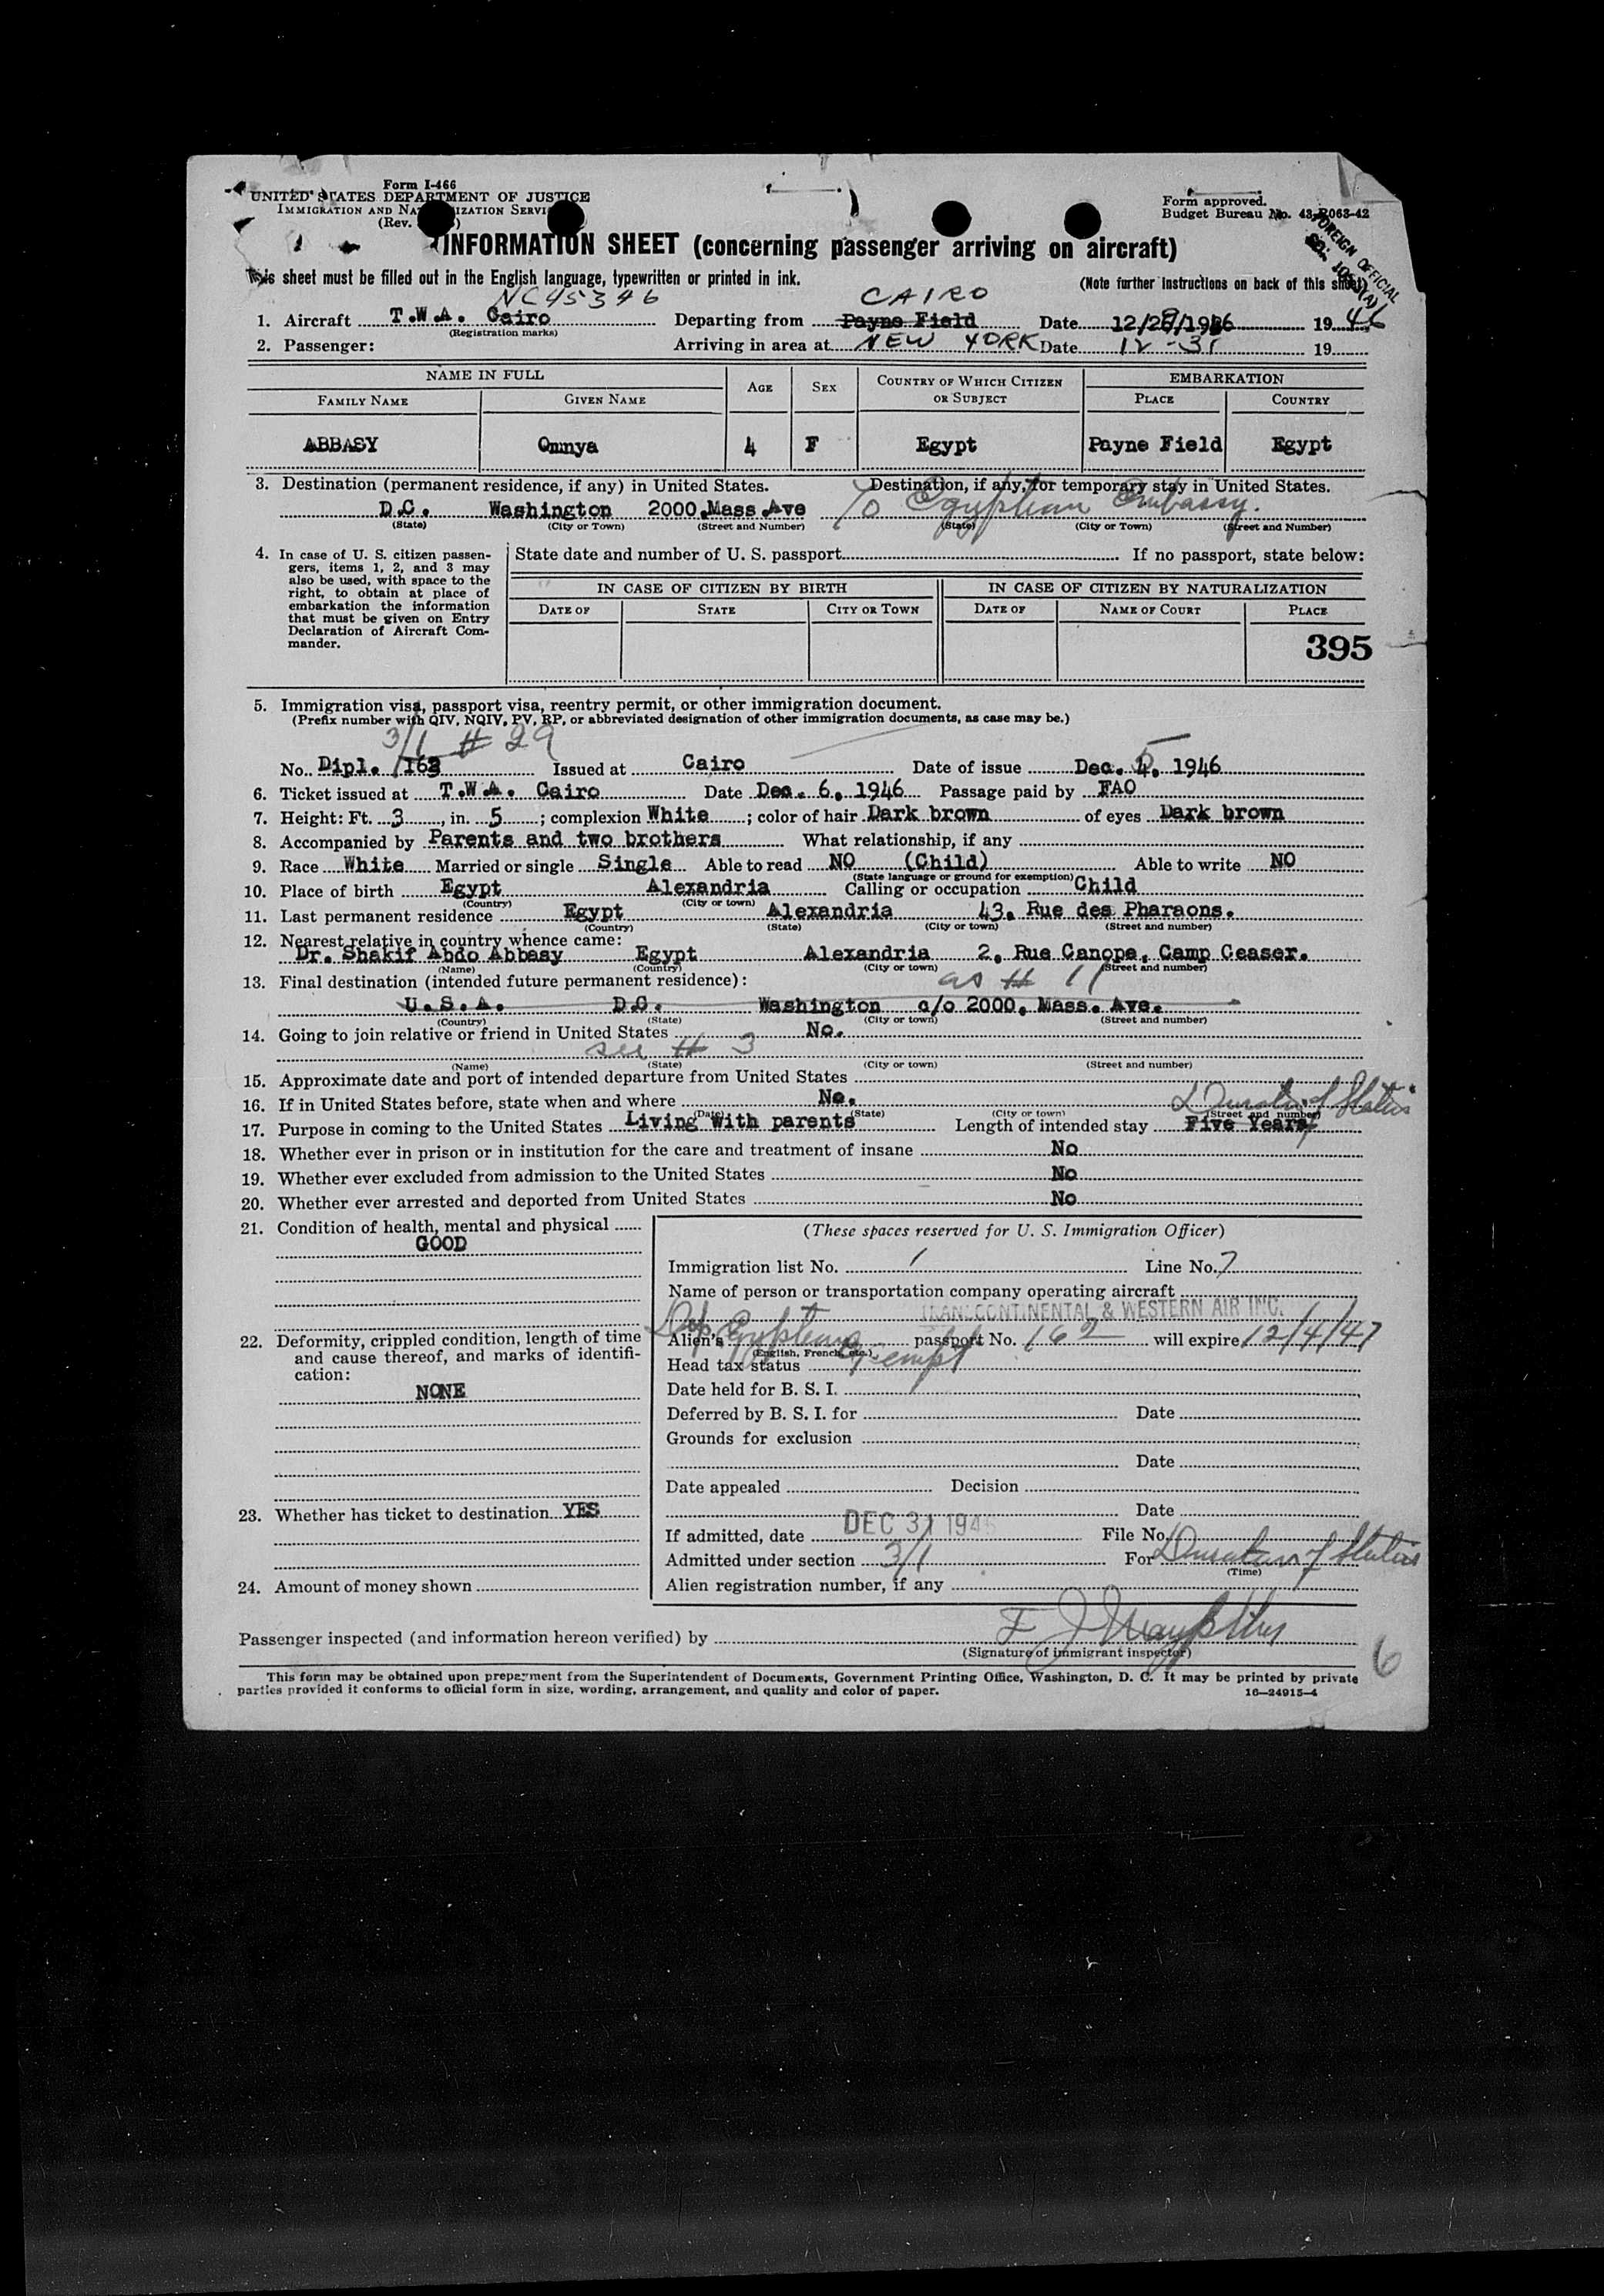 Form I-466
UNITED STATES DEPARTMENT OF JUSTICE
IMMIGRATION AND NATURALIZATION SERVICE
(Rev.
Form approved.
Budget Bureau No. 43-R063-42
FOREIGN OFFICIAL
INFORMATION SHEET (concerning passenger arriving on aircraft)
This sheet must be filled out in the English language, typewritten or printed in ink.
(Note further instructions on back of this sheet)
NC45346 CAIRO
1. Aircraft T.W.A. Cairo Departing from Payne Field Date 12/28/1946 19 46
(Registration marks)
2. Passenger: Arriving in area at NEW YORK Date 12-31 19
NAME IN FULL AGE SEX COUNTRY OF WHICH CITIZEN OR SUBJECT EMBARKATION
FAMILY NAME GIVEN NAME PLACE COUNTRY
ABBASY Omnya 4 F Egypt Payne Field Egypt
3. Destination (permanent residence, if any) in United States. Destination, if any, for temporary stay in United States.
D.C. Washington 2000 Mass Ave % Egyptian Embassy.
(State) (City or Town) (Street and Number) (State) (City or Town) (Street and Number)
4. In case of U. S. citizen passengers, items 1, 2, and 3 may
also be used, with space to the
right, to obtain at place of
embarkation the information
that must be given on Entry
Declaration of Aircraft Commander.
State date and number of U. S. passport If no passport, state below:
IN CASE OF CITIZEN BY BIRTH IN CASE OF CITIZEN BY NATURALIZATION
DATE OF STATE CITY OR TOWN DATE OF NAME OF COURT PLACE
395
5. Immigration visa, passport visa, reentry permit, or other immigration document.
(Prefix number with QIV, NQIV, PV, RP, or abbreviated designation of other immigration documents, as case may be.)
3/1 # 29 5
No. Dipl. 163 Issued at Cairo Date of issue Dec. 4. 1946
6. Ticket issued at T.W.A. Cairo Date Dec. 6. 1946 Passage paid by FAO
7. Height: Ft. 3, in. 5; complexion White; color of hair Dark brown of eyes Dark brown
8. Accompanied by Parents and two brothers What relationship, if any
9. Race White Married or single Single Able to read NO (Child) Able to write NO
(State language or ground for exemption)
10. Place of birth Egypt Alexandria Calling or occupation Child
(Country) (City or town)
11. Last permanent residence Egypt Alexandria 43. Rue des Pharaons.
(Country) (State) (City or town) (Street and number)
12. Nearest relative in country whence came:
Dr. Shakif Abdo Abbasy Egypt Alexandria 2. Rue Canope, Camp Ceaser.
(Name) (Country) (City or town) (Street and number)
13. Final destination (intended future permanent residence): as # 11
U.S.A. D.C. Washington c/o 2000. Mass. Ave.
(Country) (State) (City or town) (Street and number)
14. Going to join relative or friend in United States No.
see # 3
(Name) (State) (City or town) (Street and number)
15. Approximate date and port of intended departure from United States
16. If in United States before, state when and where No. Duration of Status
(Date) (State) (City or town) (Street and number)
17. Purpose in coming to the United States Living With parents Length of intended stay Five Years
18. Whether ever in prison or in institution for the care and treatment of insane No
19. Whether ever excluded from admission to the United States No
20. Whether ever arrested and deported from United States No
21. Condition of health, mental and physical
GOOD
22. Deformity, crippled condition, length of time
and cause thereof, and marks of identification:
NONE
23. Whether has ticket to destination YES
24. Amount of money shown
(These spaces reserved for U. S. Immigration Officer)
Immigration list No. 1 Line No. 7
Name of person or transportation company operating aircraft
TRANSCONTINENTAL & WESTERN AIR INC.
Dip. Egyptian
Alien's passport No. 162 will expire 12/4/47
(English, French, etc.)
Head tax status Exempt
Date held for B. S. I.
Deferred by B. S. I. for Date
Grounds for exclusion
Date
Date appealed Decision
Date
If admitted, date DEC 31 1946 File No.
Admitted under section 3/1 For Duration of Status
(Time)
Alien registration number, if any
Passenger inspected (and information hereon verified) by
(Signature of immigrant inspector)
6
This form may be obtained upon prepayment from the Superintendent of Documents, Government Printing Office, Washington, D. C. It may be printed by private
parties provided it conforms to official form in size, wording, arrangement, and quality and color of paper. 16—24915-4